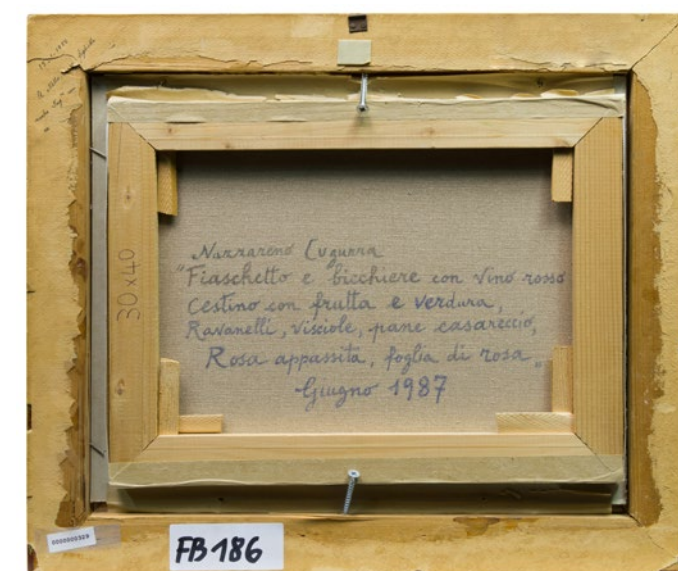 Nazzareno Cugurra
"Fiaschetto e bicchiere con vino rosso
Cestino con frutta e verdura,
Ravanelli, visciole, pane casareccio,
Rosa appassita, foglia di rosa„
Giugno 1987
30x40
0000000329
FB186